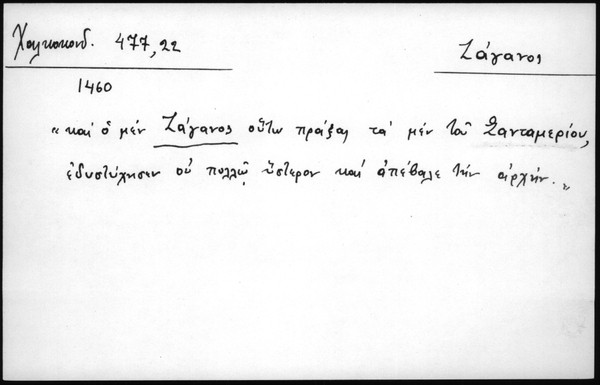 Χαλκοκονδ. 477,22
Ζάγανος
1460
"καὶ ὁ μὲν Ζάγανος οὕτω πράξας τὰ μὲν τοῦ Σανταμερίου,
ἐδυστύχησεν οὐ πολλῷ ὕστερον καὶ ἀπέβαλε τὴν ἀρχήν."